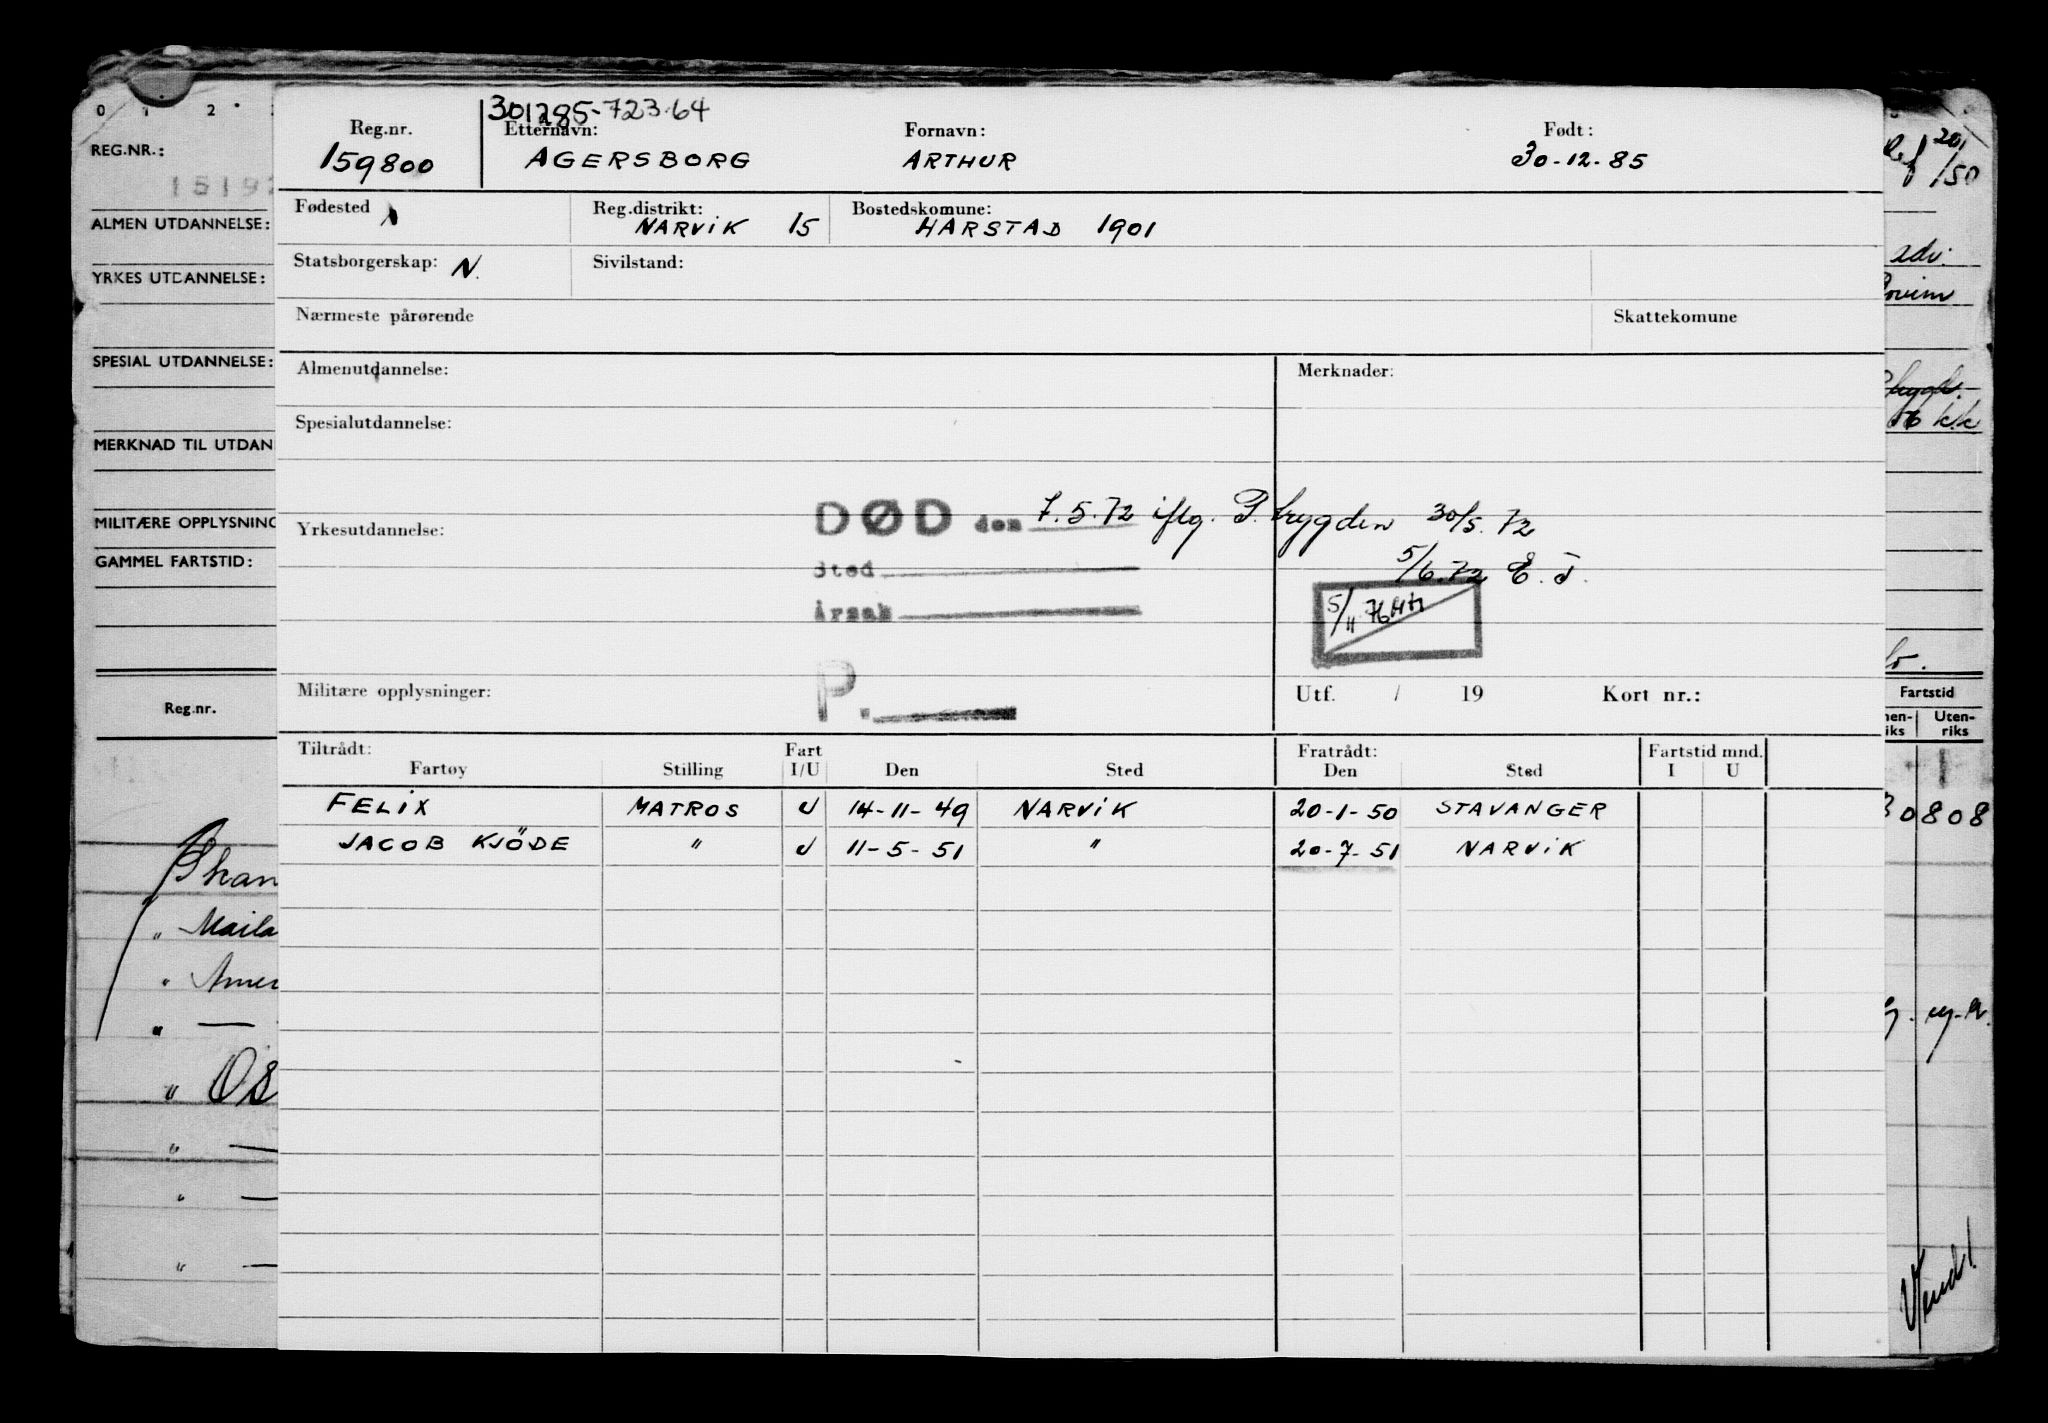 301285-723.64
Reg.nr. Etternavn: Fornavn: Født:
159800 AGERSBORG ARTHUR 30-12-85
Fødested Reg.distrikt: Bostedskomune:
NARVIK 15 HARSTAD 1901
Statsborgerskap: N. Sivilstand:
Nærmeste pårørende Skattekomune
Almenutdannelse: Merknader:
Spesialutdannelse:
DØD den 7.5.72 iflg. P. trygden 30/5.72
Yrkesutdannelse:
Sted 5/6.72 E. J.
Årsak 5/11
P.
Militære opplysninger: Utf. / 19 Kort nr.:
Tiltrådt: Fart Fratrådt: Fartstid mnd.
Fartøy Stilling I/U Den Sted Den Sted I U
FELIX MATROS U 14-11-49 NARVIK 20-1-50 STAVANGER
JACOB KJÖDE " U 11-5-51 " 20-7-51 NARVIK
0 1 2
REG.NR.:
1519
ALMEN UTDANNELSE:
YRKES UTDANNELSE:
SPESIAL UTDANNELSE:
MERKNAD TIL UTDAN
MILITÆRE OPPLYSNING
GAMMEL FARTSTID:
Reg.nr.
" Maila
" Amer
" —
" Os
" —
" —
" —
20/1
/50
Fartstid
nen- Uten-
iks riks
30808
Vend!